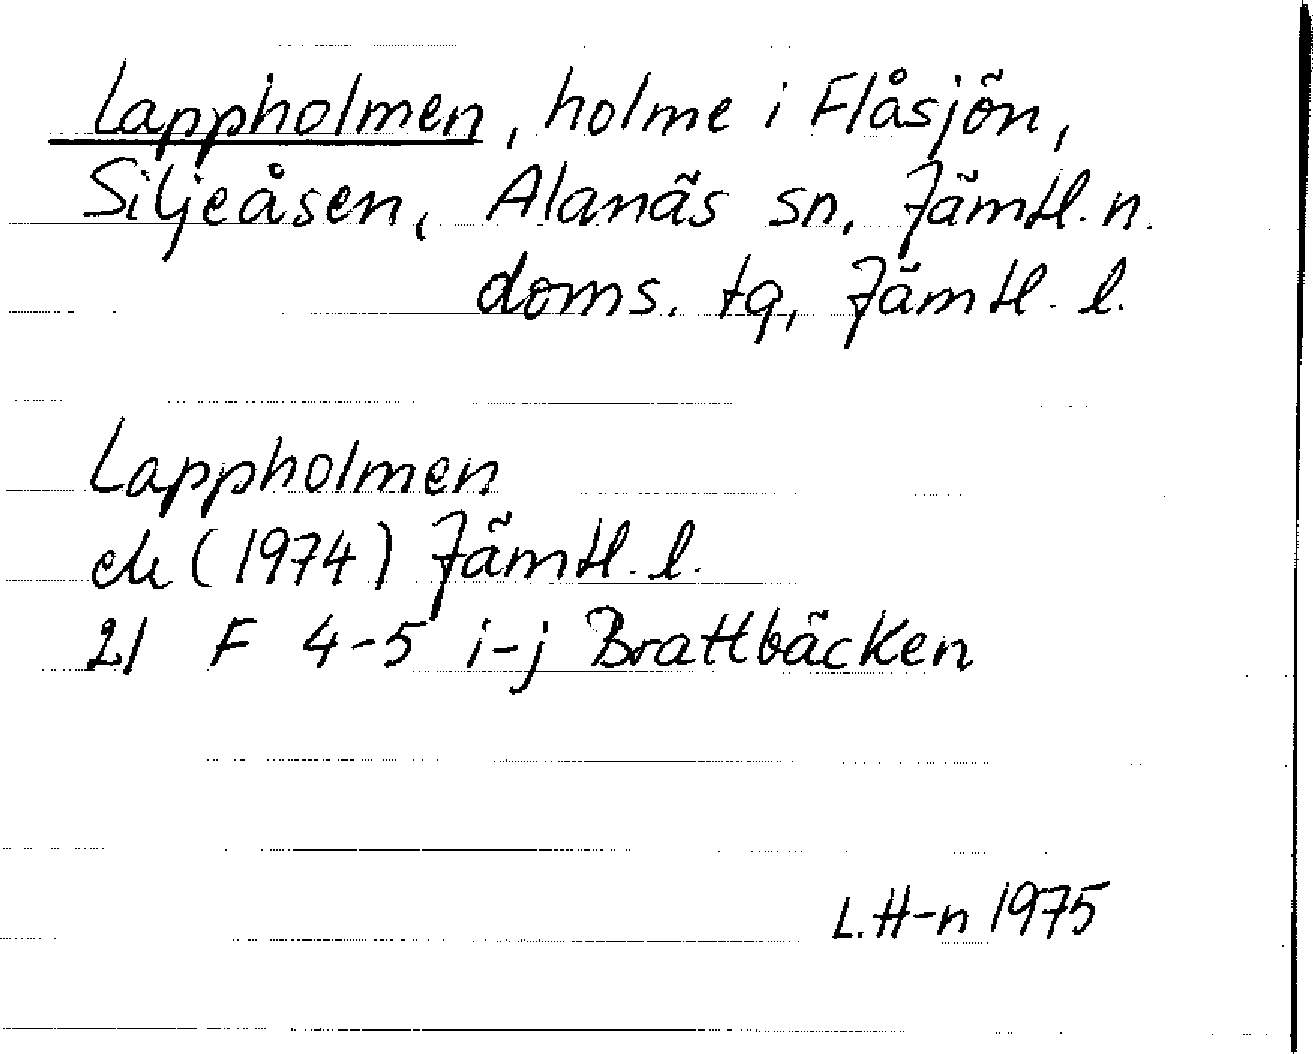 Lappholmen, holme i Flåsjön,
Siljeåsen, Alanäs sn, Jämtl. n.
doms. tg, Jämtl. l.
Lappholmen
ek (1974) Jämtl. l.
21 F 4-5 i-j Brattbäcken
L. H-n 1975